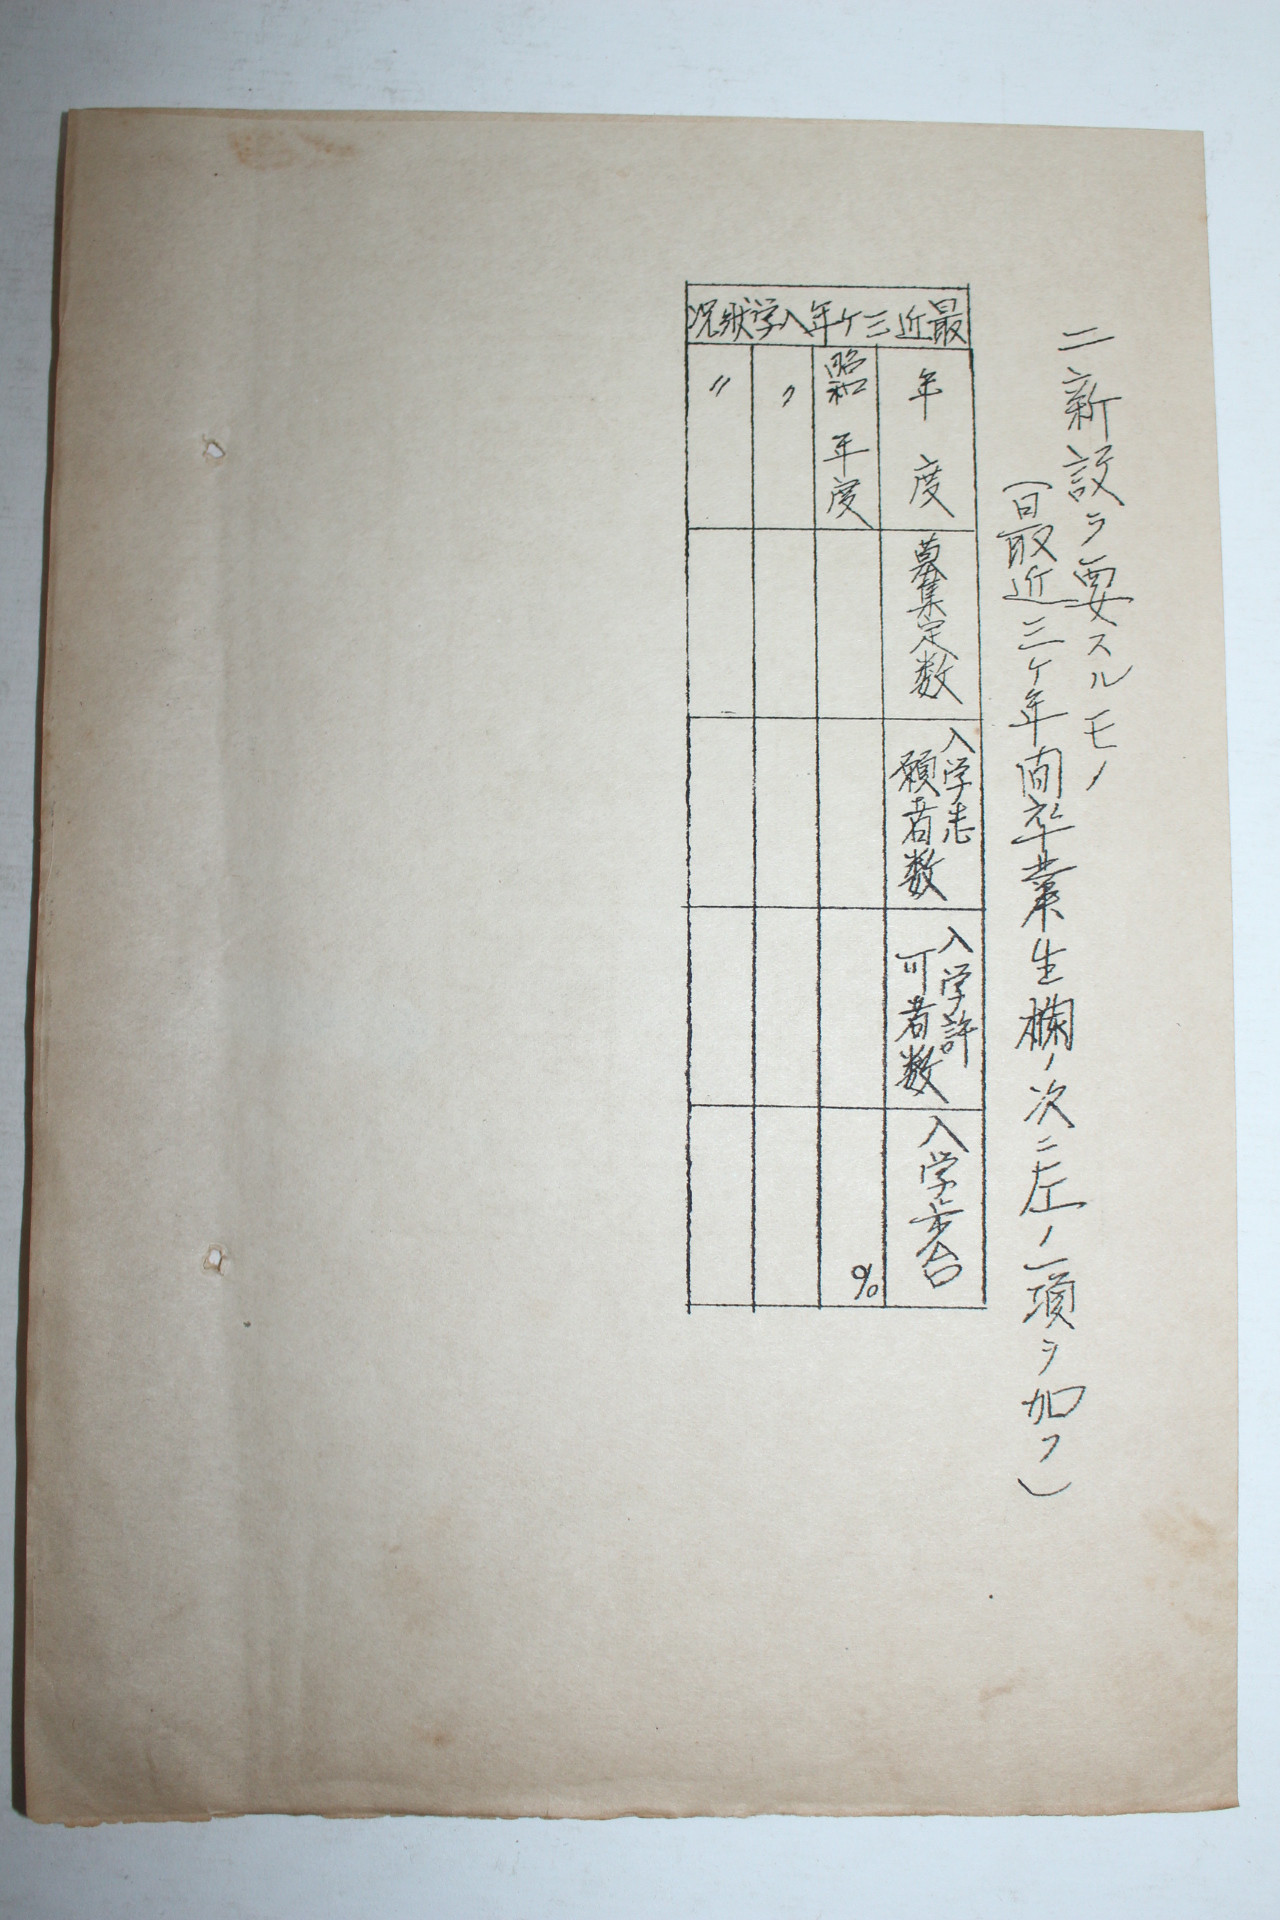 二新設ヲ要スルモノ
(最近三ケ年間卒業生欄ノ次ニ左ノ一項ヲ加フ)
最近三ケ年入学状況
年度
募集定数
入学志
願者数
入学許
可者数
入学歩合
昭和 年度
%
〃
〃